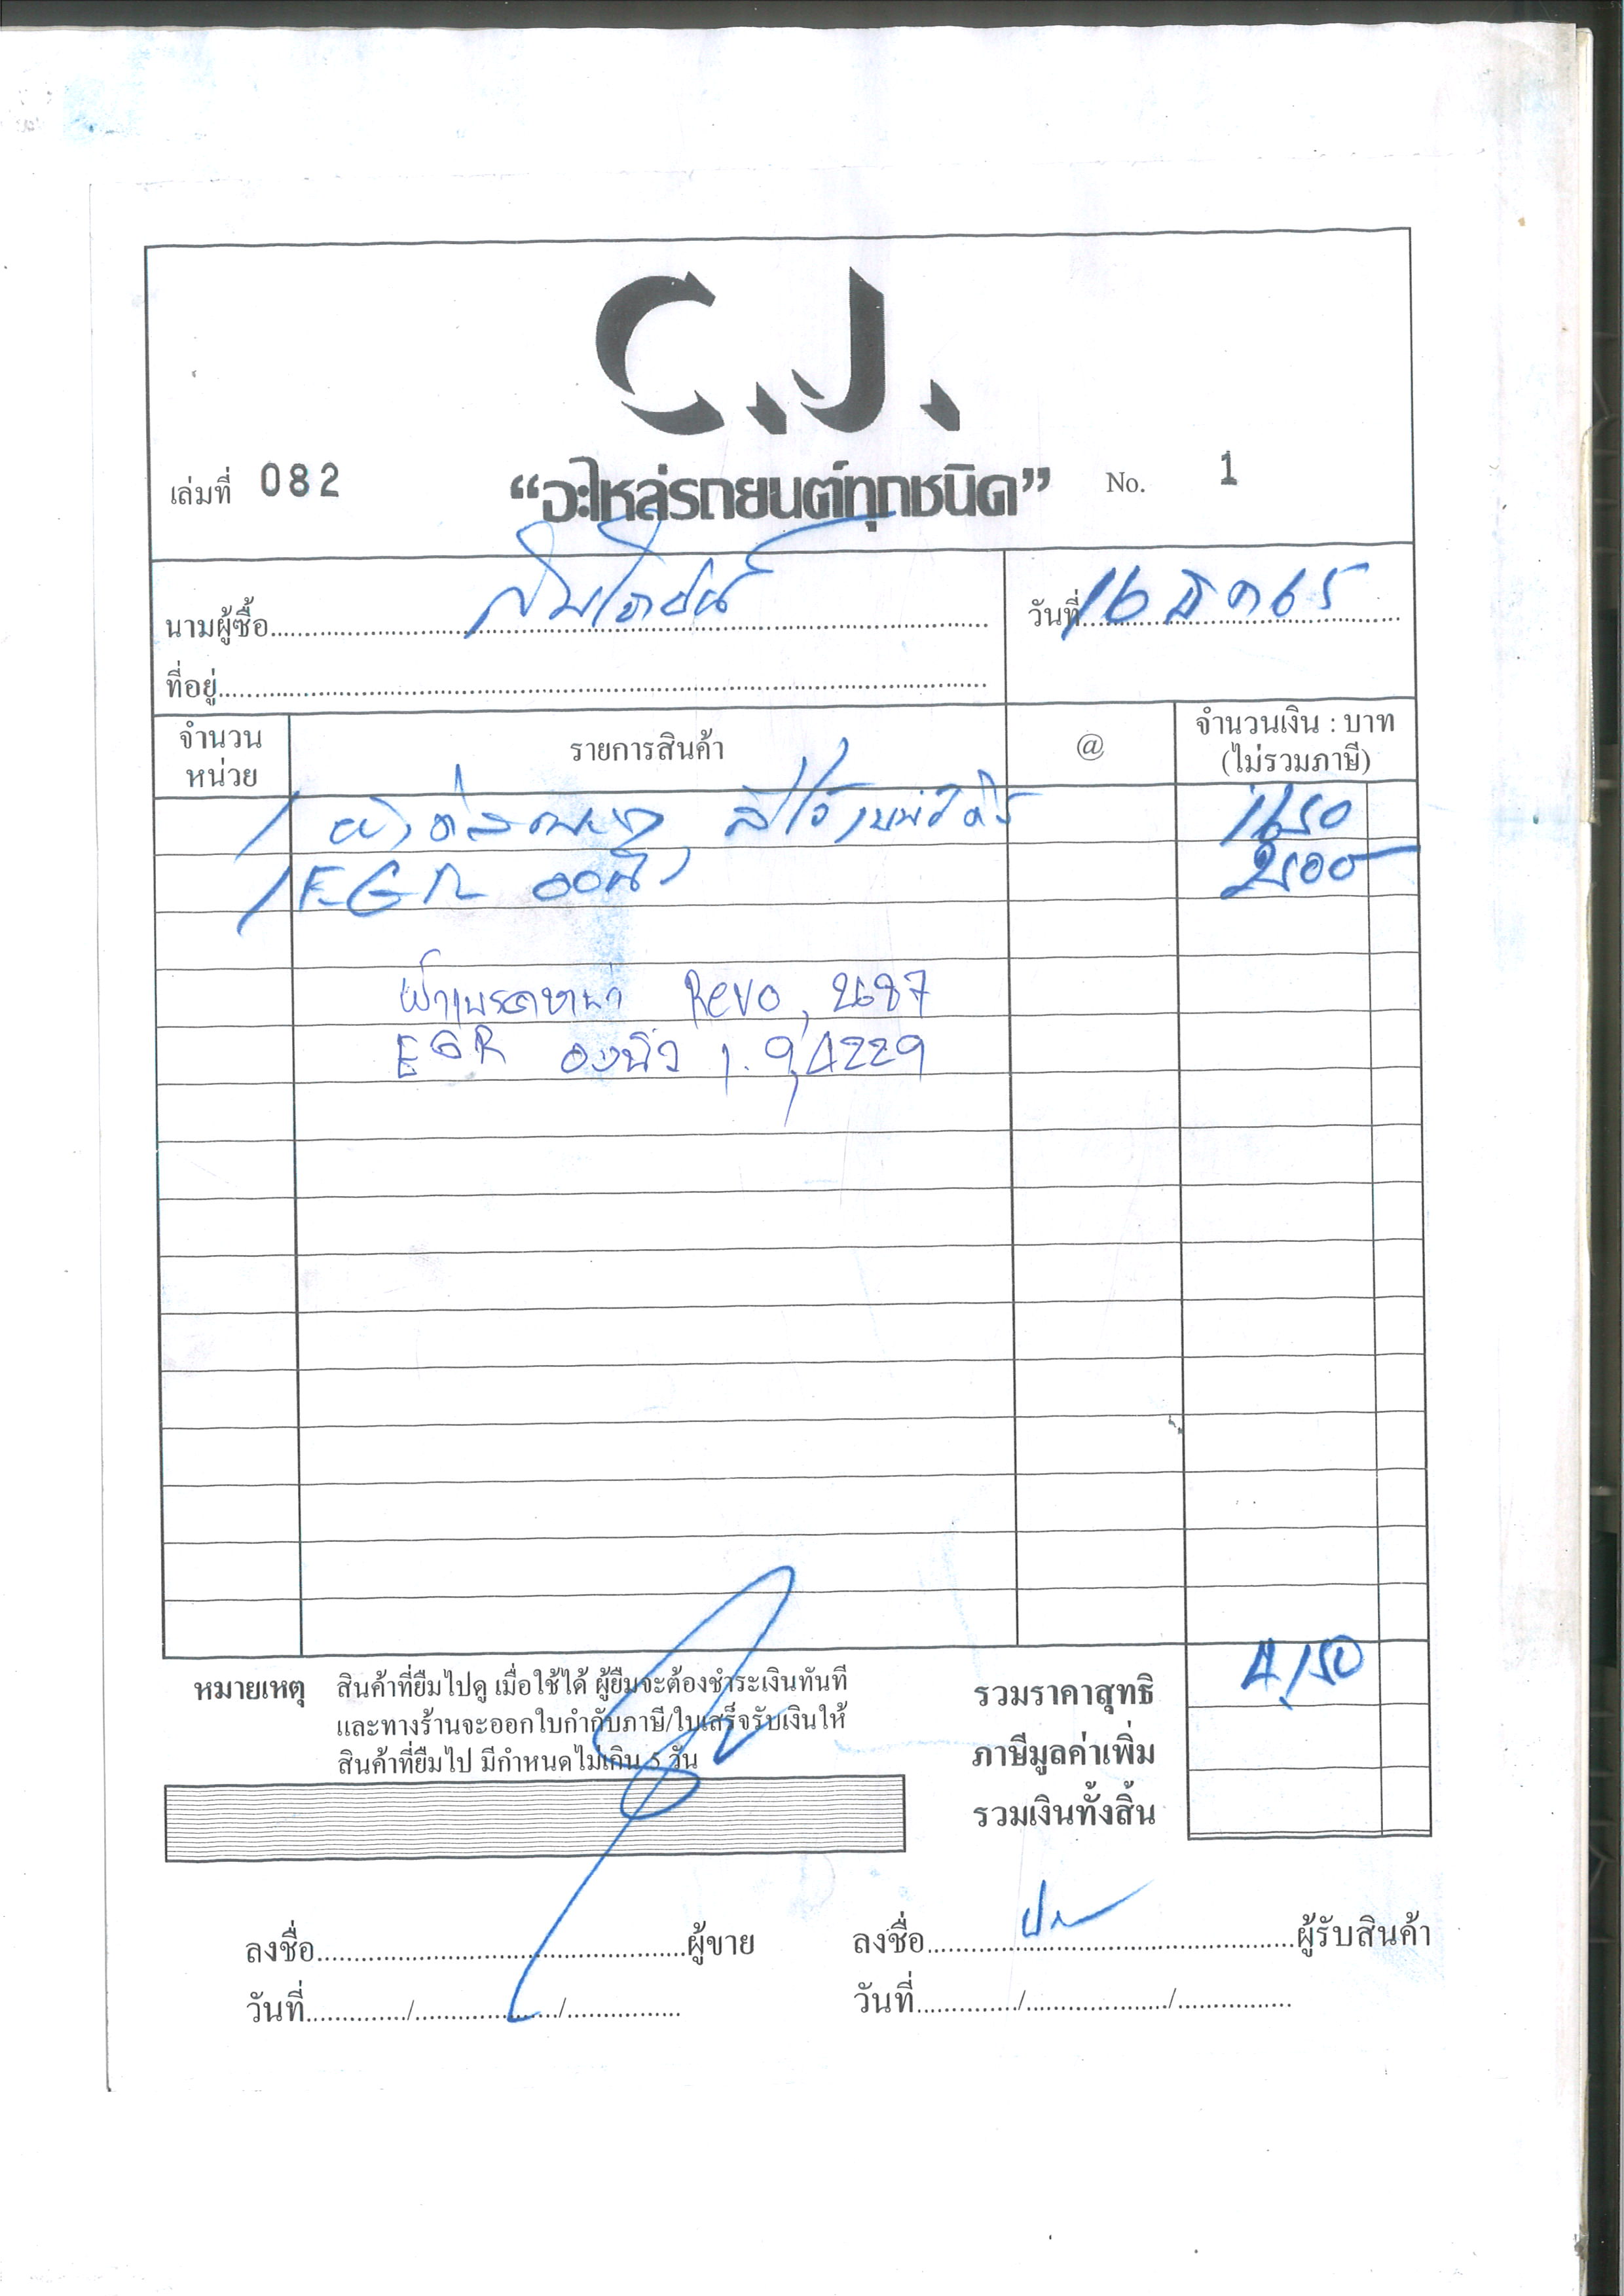 C.J.
เล่มที่ 082 “อะไหล่รถยนต์ทุกชนิด” No. 1
นามผู้ซื้อ
วันที่ 16 มิค 65
ที่อยู่
จำนวน หน่วย รายการสินค้า @ จำนวนเงิน : บาท (ไม่รวมภาษี)
1 1650
1 EGR ออนิว 2500
ผ้าเบรคหน้า Revo, 2687
EGR ออนิว 1.9, 4229
หมายเหตุ สินค้าที่ยืมไปดู เมื่อใช้ได้ ผู้ยืมจะต้องชำระเงินทันที
และทางร้านจะออกใบกำกับภาษี/ใบเสร็จรับเงินให้
สินค้าที่ยืมไป มีกำหนดไม่เกิน 5 วัน
รวมราคาสุทธิ 4,150
ภาษีมูลค่าเพิ่ม
รวมเงินทั้งสิ้น
ลงชื่อ ผู้ขาย ลงชื่อ ผู้รับสินค้า
วันที่ / / วันที่ / /